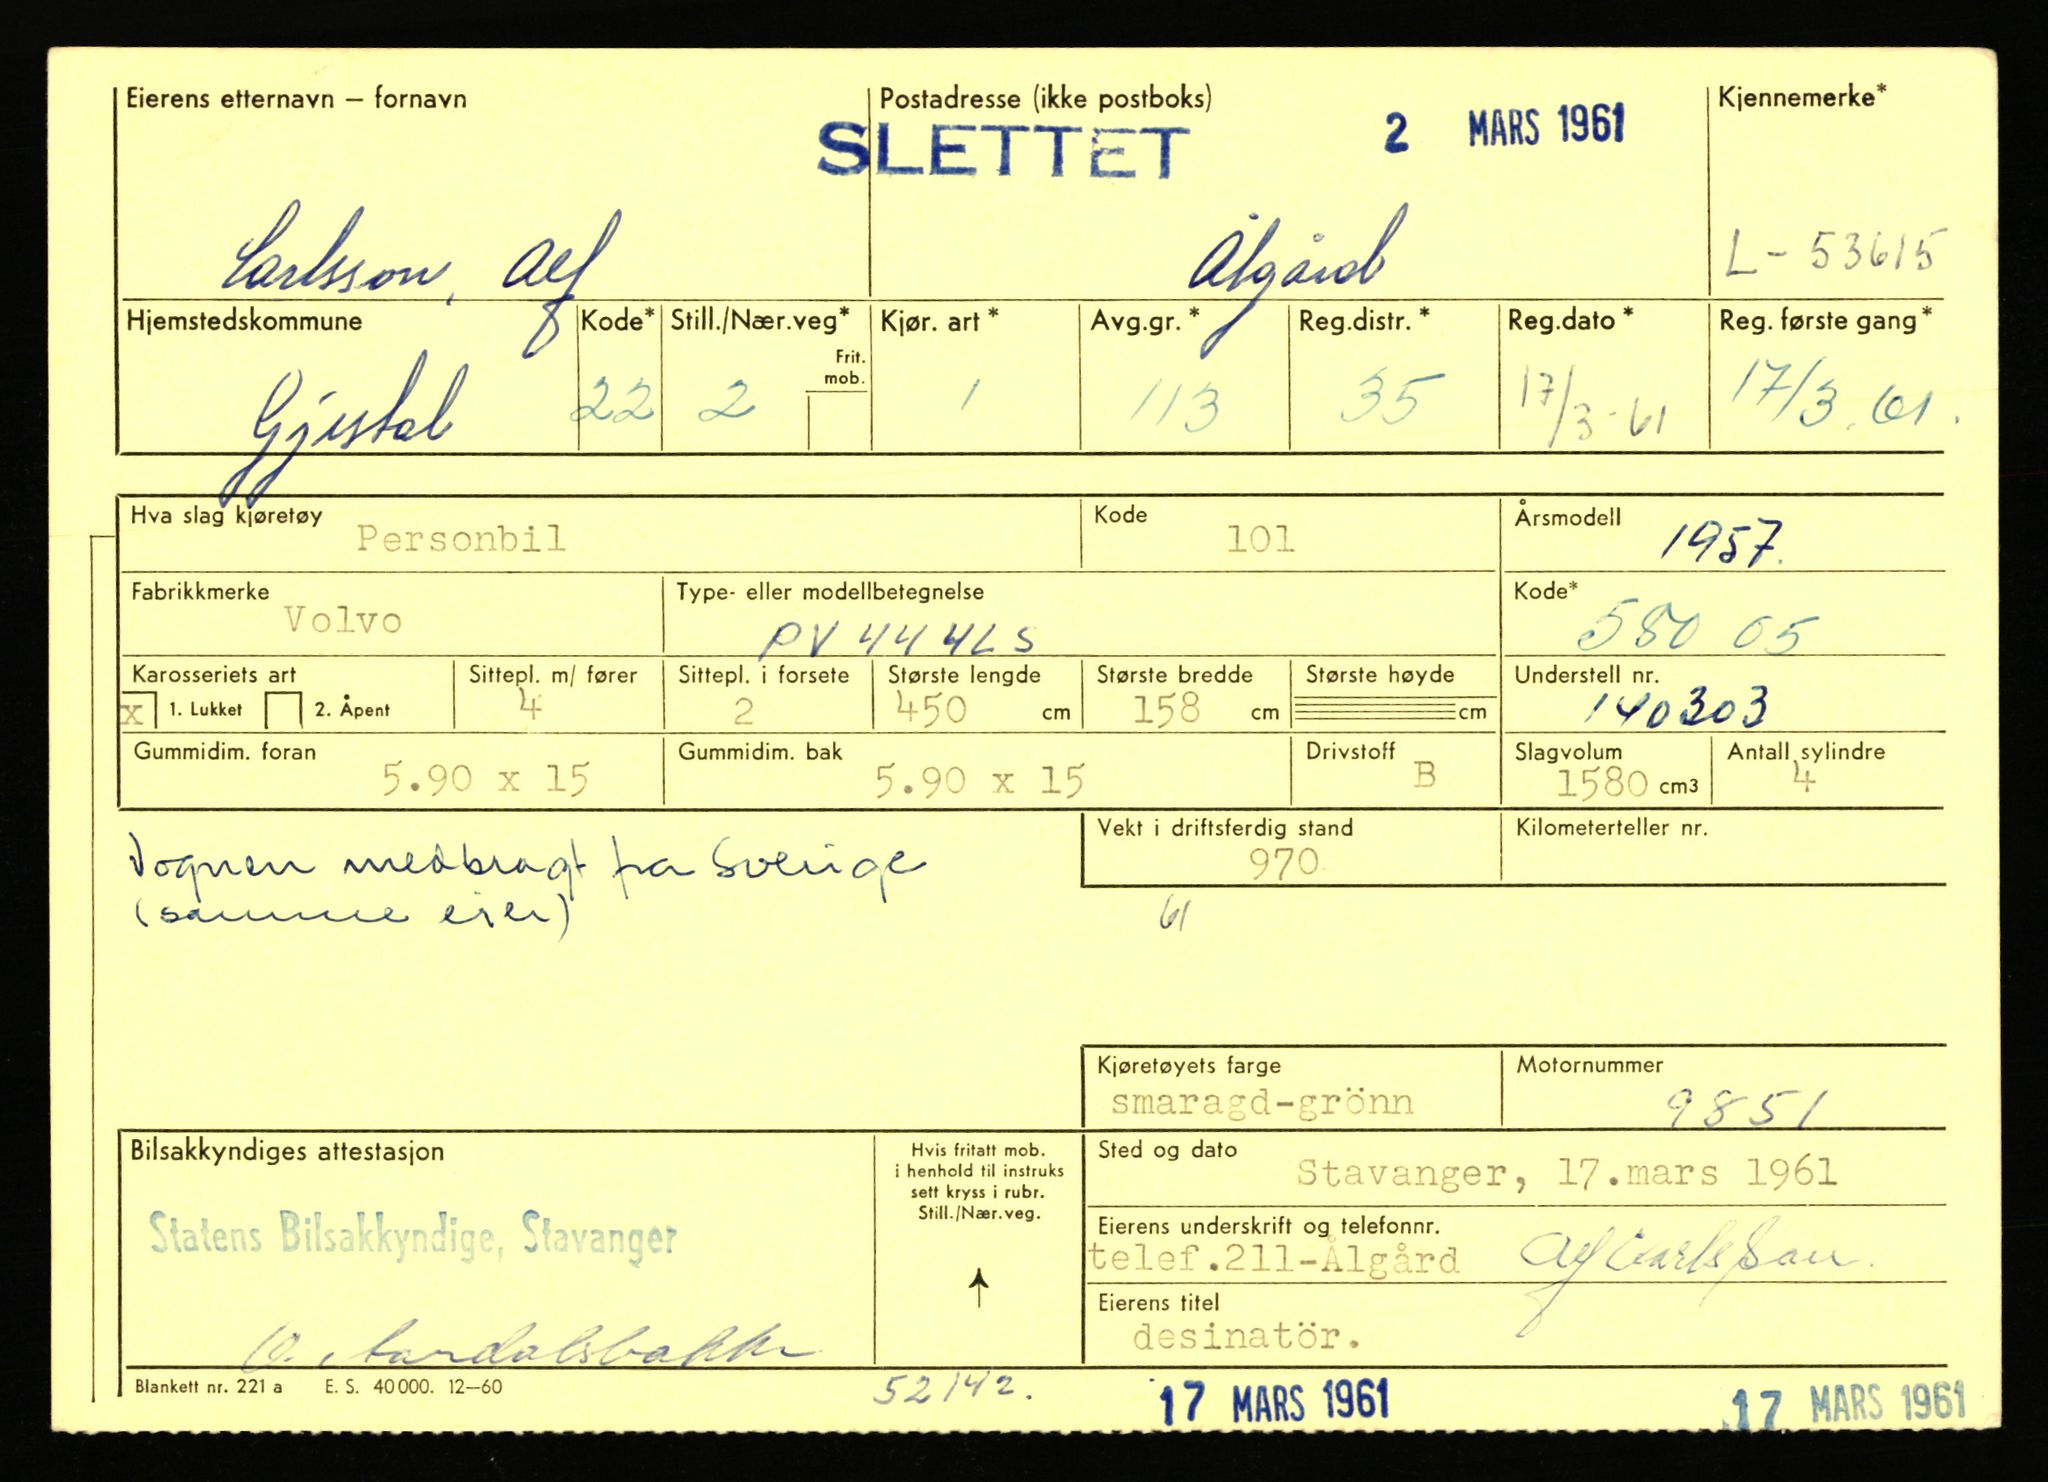 Eierens etternavn – fornavn
Postadresse (ikke postboks)
Kjennemerke*
SLETTET
2 MARS 1961
Carlsson, Alf
Ålgård
L-53615
Hjemstedskommune
Kode*
Still./Nær.veg*
Frit. mob.
Kjør. art*
Avg.gr.*
Reg.distr.*
Reg.dato*
Reg. første gang*
Gjestal
22
2
1
113
35
17/3-61
17/3.61.
Hva slag kjøretøy
Personbil
Kode
101
Årsmodell
1957.
Fabrikkmerke
Volvo
Type- eller modellbetegnelse
PV 444LS
Kode*
580 05
Karosseriets art
x 1. Lukket 2. Åpent
Sittepl. m/ fører
4
Sittepl. i forsete
2
Største lengde
450 cm
Største bredde
158 cm
Største høyde
cm
Understell nr.
140303
Gummidim. foran
5.90 x 15
Gummidim. bak
5.90 x 15
Drivstoff
B
Slagvolum
1580 cm3
Antall sylindre
4
Vognen medbragt fra Sverige
(samme eier)
Vekt i driftsferdig stand
970
Kilometerteller nr.
61
Kjøretøyets farge
smaragd-grönn
Motornummer
9851
Bilsakkyndiges attestasjon
Statens Bilsakkyndige, Stavanger
Hvis fritatt mob.
i henhold til instruks
sett kryss i rubr.
Still./Nær.veg.
Sted og dato
Stavanger, 17.mars 1961
Eierens underskrift og telefonnr.
telef.211-Ålgård Alf Carlsson.
Eierens titel
desinatör.
Blankett nr. 221 a E. S. 40000. 12–60
52142.
17 MARS 1961
17 MARS 1961